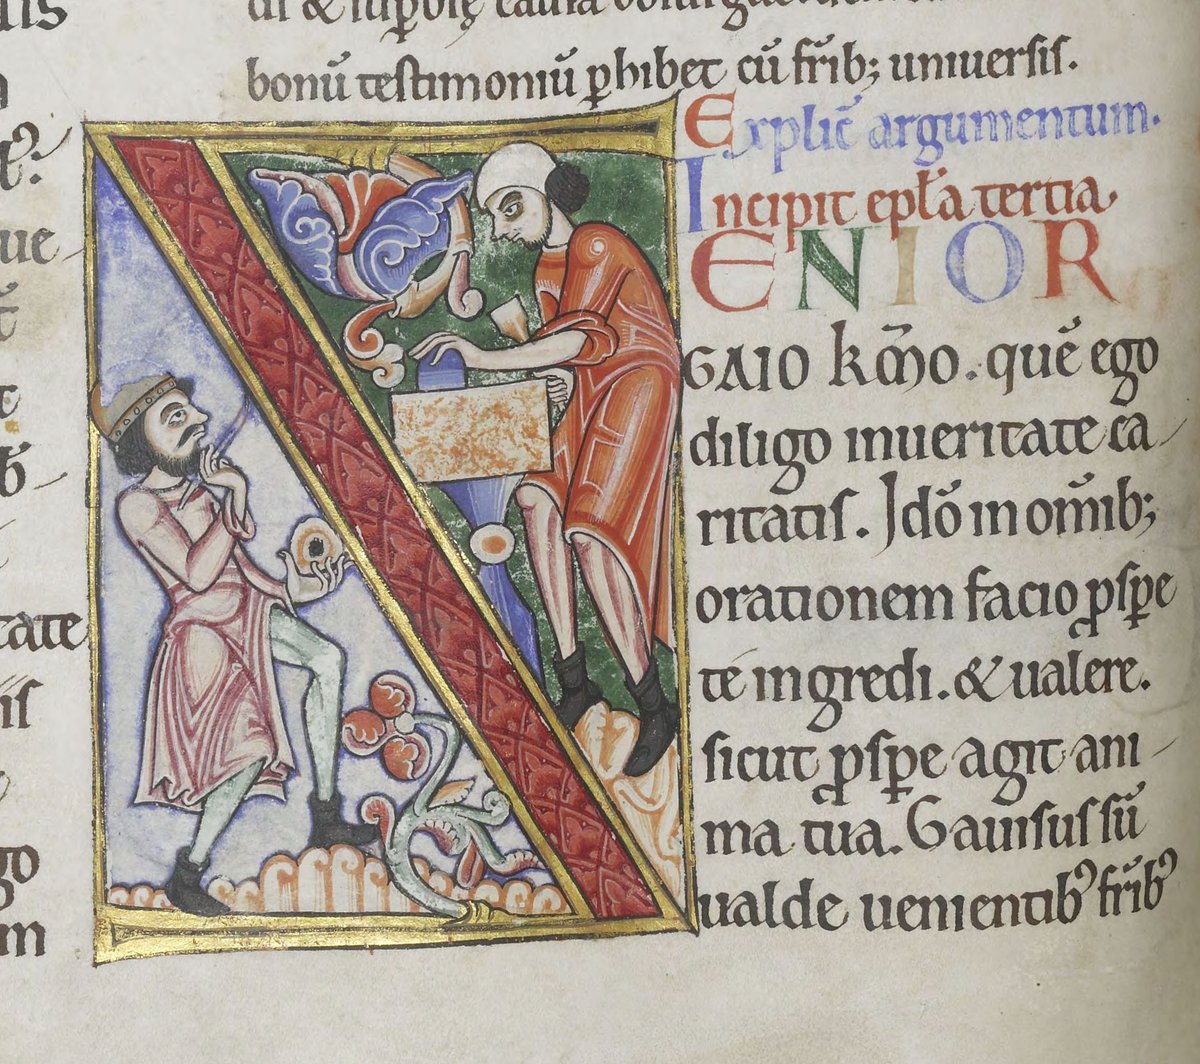 bonū testimoniū phibet cū frib; uniuersis.
Explic̄ argumentum.
Incipit epła tertia.
ENIOR
GAIO km̄o. quē ego
diligo inueritate ca
ritatis. Idō in om̄ib;
orationem facio pspe
te ingredi. & ualere.
sicut pspe agit ani
ma tua. Gauisus sū
ualde uenientib᾽ frib᾽